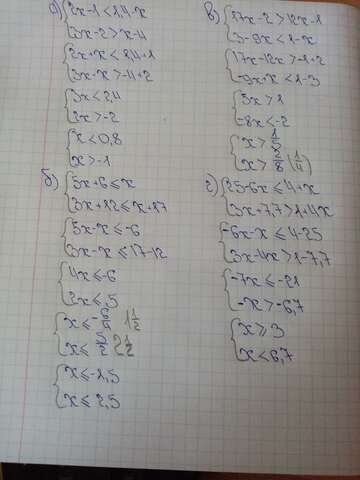 а) {2x-1<1,4-x
{3x-2>x-4
{2x+x<1,4+1
{3x-x>-4+2
{3x<2,4
{2x>-2
{x<0,8
{x>-1
б) {5x+6≤x
{3x+12≤x+17
{5x-x≤-6
{3x-x≤17-12
{4x≤-6
{2x≤5
{x≤-6/4 1 1/2
{x≤5/2 2 1/2
{x≤-1,5
{x≤2,5
в) {17x-2>12x-1
{3-9x<1-x
{17x-12x>-1+2
{-9x+x<1-3
{5x>1
{-8x<-2
{x>1/5
{x>2/8 (1/4)
г) {25-6x≤4+x
{3x+7,7>1+4x
{-6x-x≤4-25
{3x-4x>1-7,7
{-7x≤-21
{-x>-6,7
{x≥3
{x<6,7